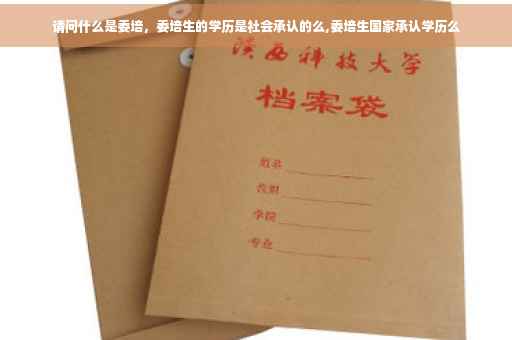 请问什么是委培，委培生的学历是社会承认的么,委培生国家承认学历么
陕西科技大学
档案袋
姓名
学院
专业